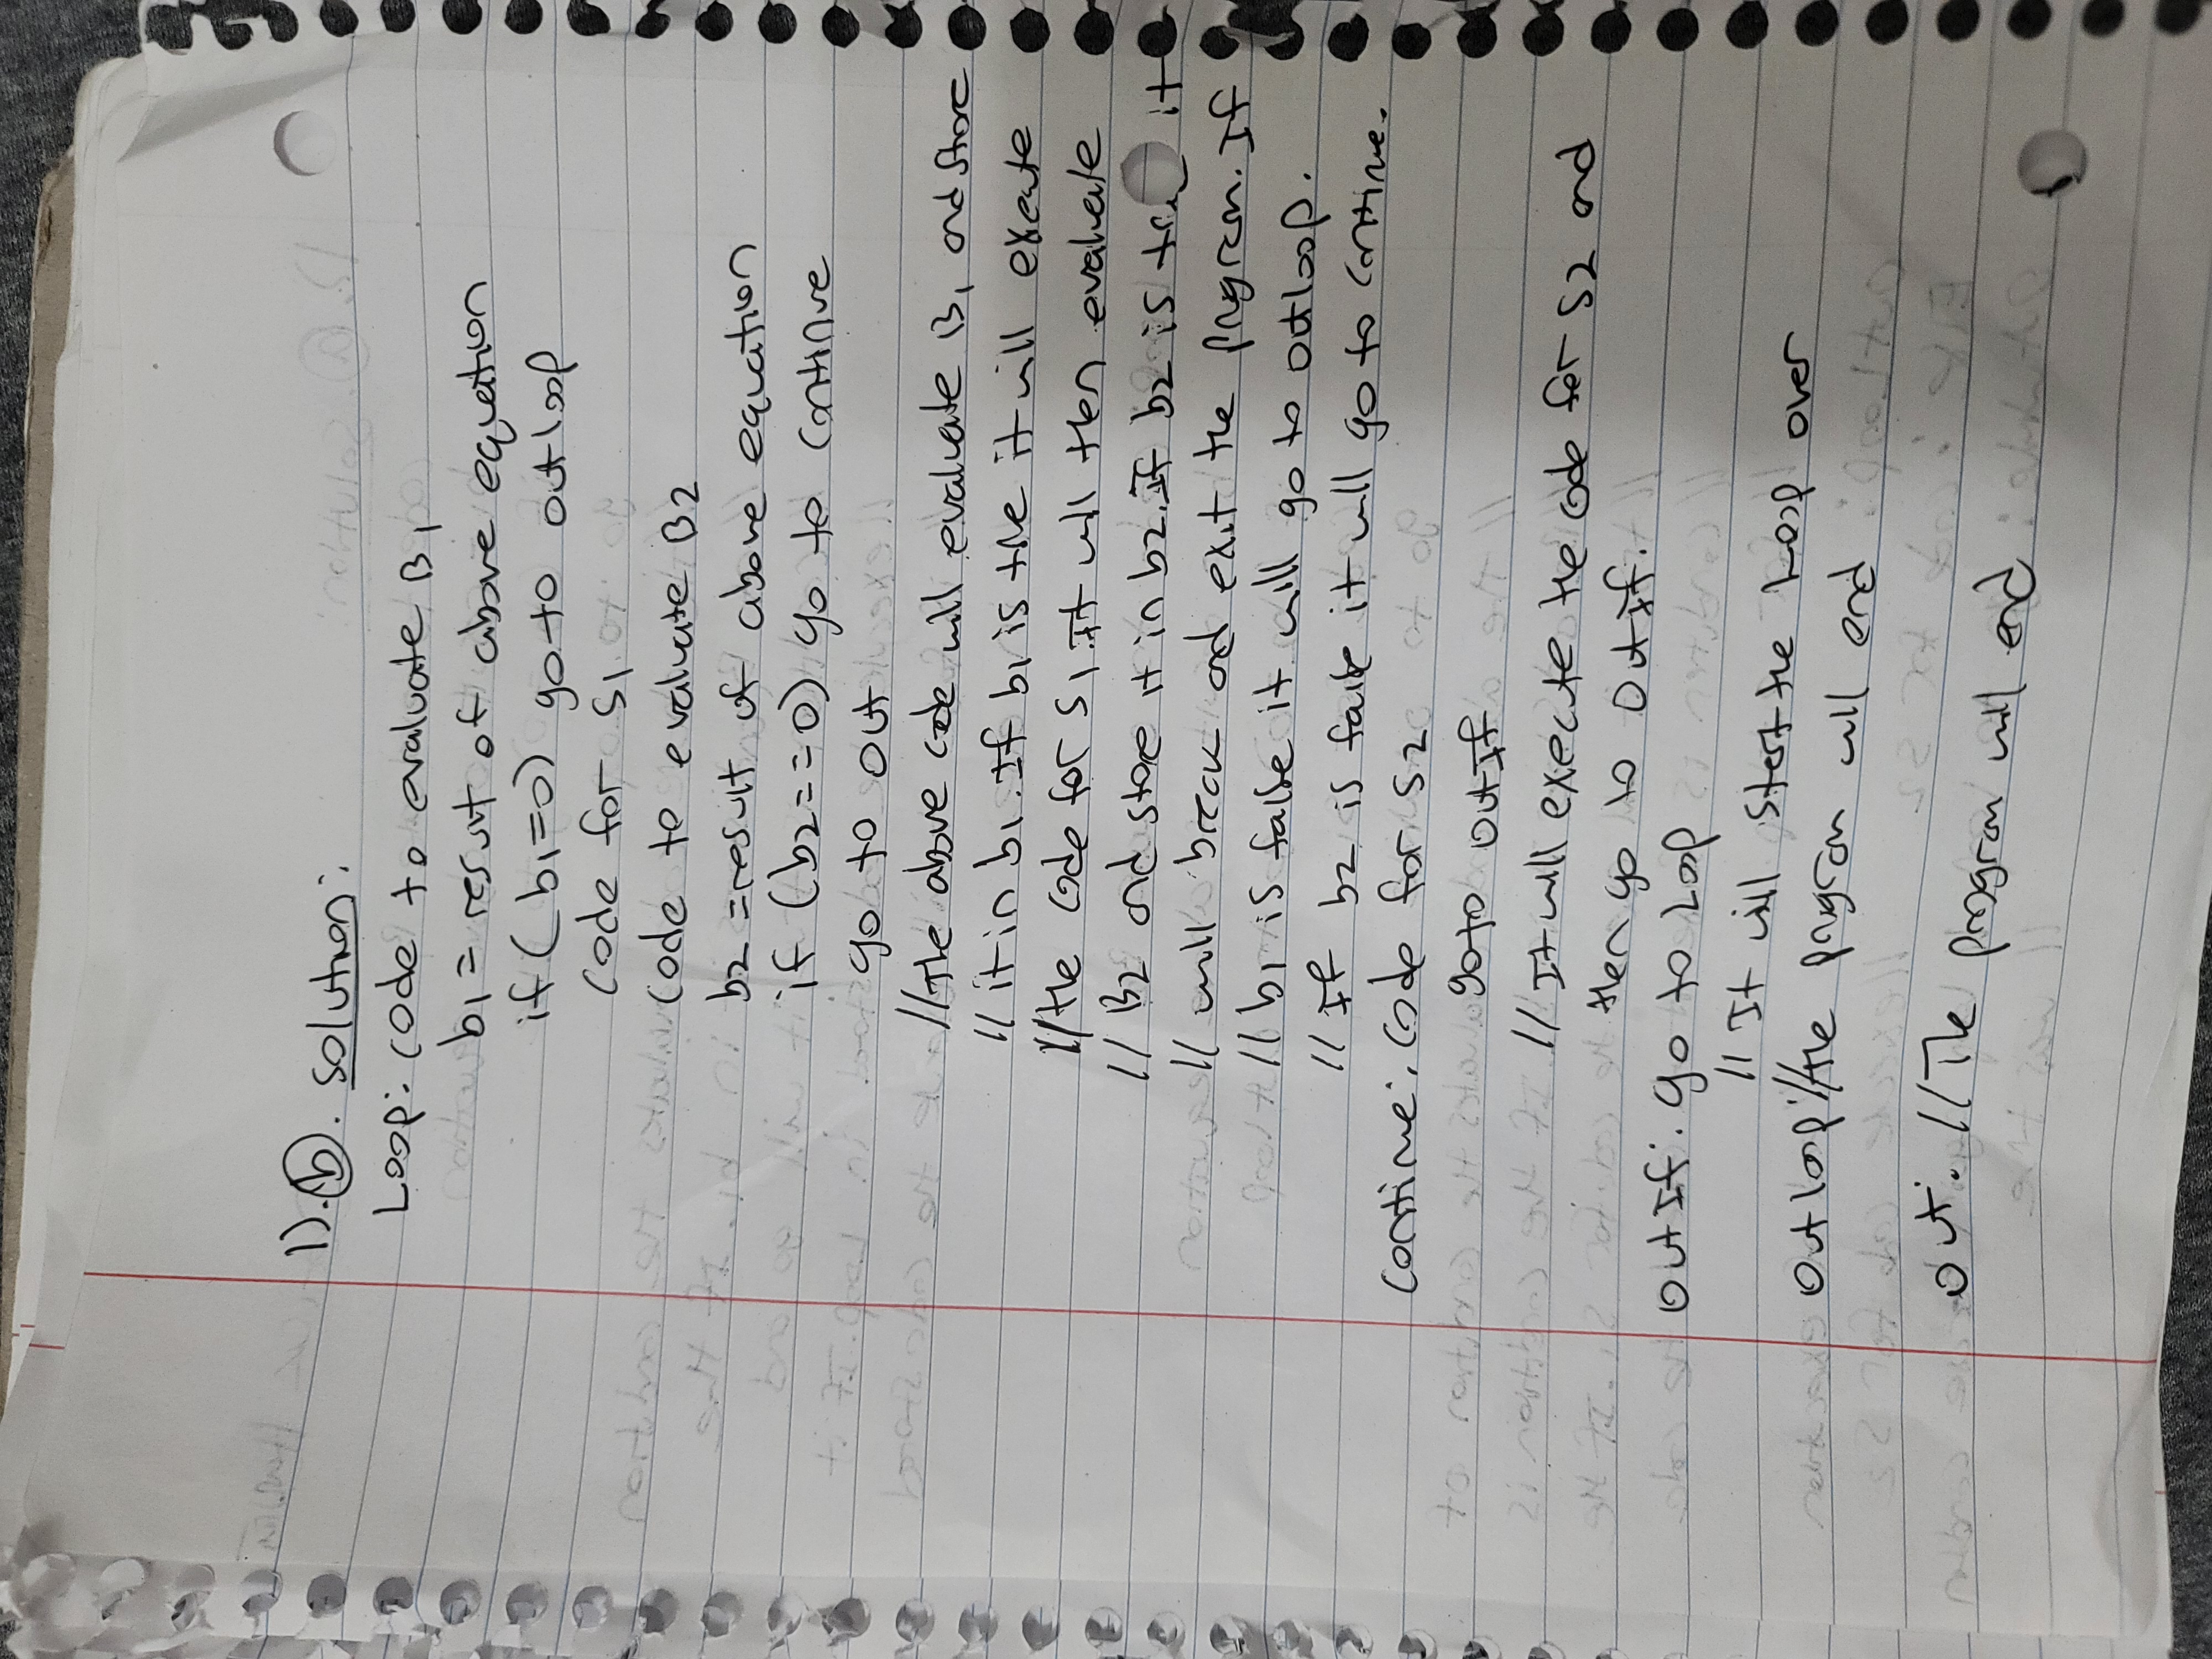 1).(b). solution:
Loop: code to evaluate B1
b1 = result of above equation
if ( b1=0) go to outloop
code for S1
code to evaluate B2
b2 =result of above equation
if (b2==0) go to continue
go to out
//The above code will evaluate B1 and store
// it in b1. If b1 is true it will execute
//the code for S1. It will then evaluate
// B2 and store it in b2. If b2 is it
// will break and exit the program. If
// b1 is false it will go to outloop.
// If b2 is false it will go to continue.
continue: code for S2
goto outIf
// It will execute the code for S2 and
then go to OutIf.
outIf: go to Loop
// It will start the Loop over
outloop://the program will end
out: //The program will end